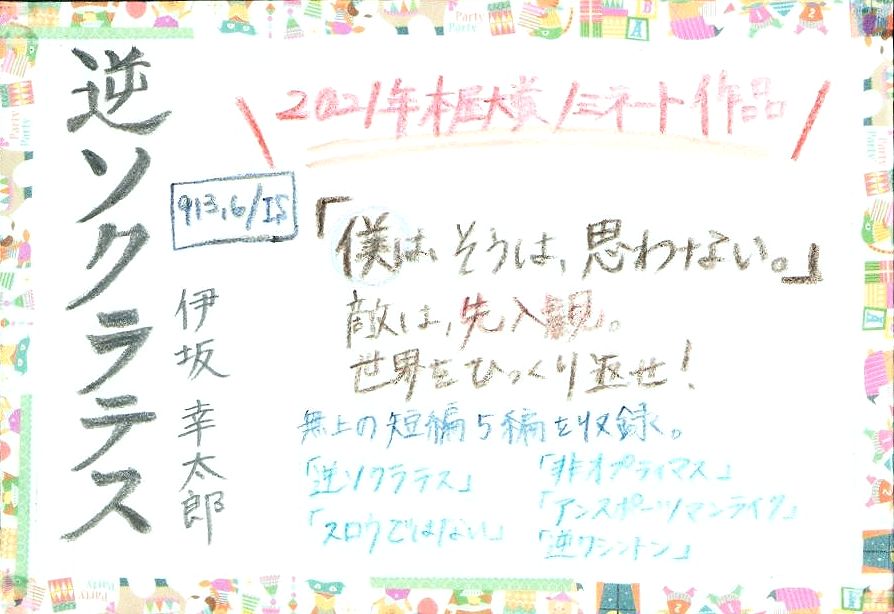 逆ソクラテス
伊坂 幸太郎
2021年本屋大賞ノミネート作品
913.6/IS
「僕は、そうは、思わない。」
敵は、先入観。
世界をひっくり返せ!
無上の短編5編を収録。
「逆ソクラテス」
「スロウではない」
「非オプティマス」
「アンスポーツマンライク」
「逆ワシントン」
Party
Party